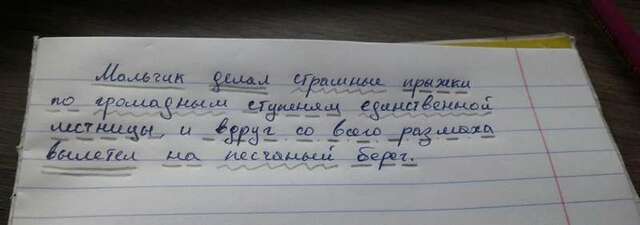 Мальчик делал страшные прыжки
по громадным ступеням единственной
лестницы, и вдруг со всего размаха
вылетел на песчаный берег.